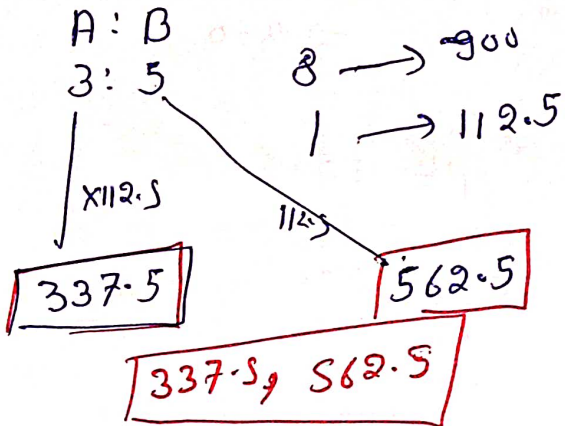 A : B
3 : 5
8 → 900
1 → 112.5
x112.5
112.5
337.5
562.5
337.5, 562.5